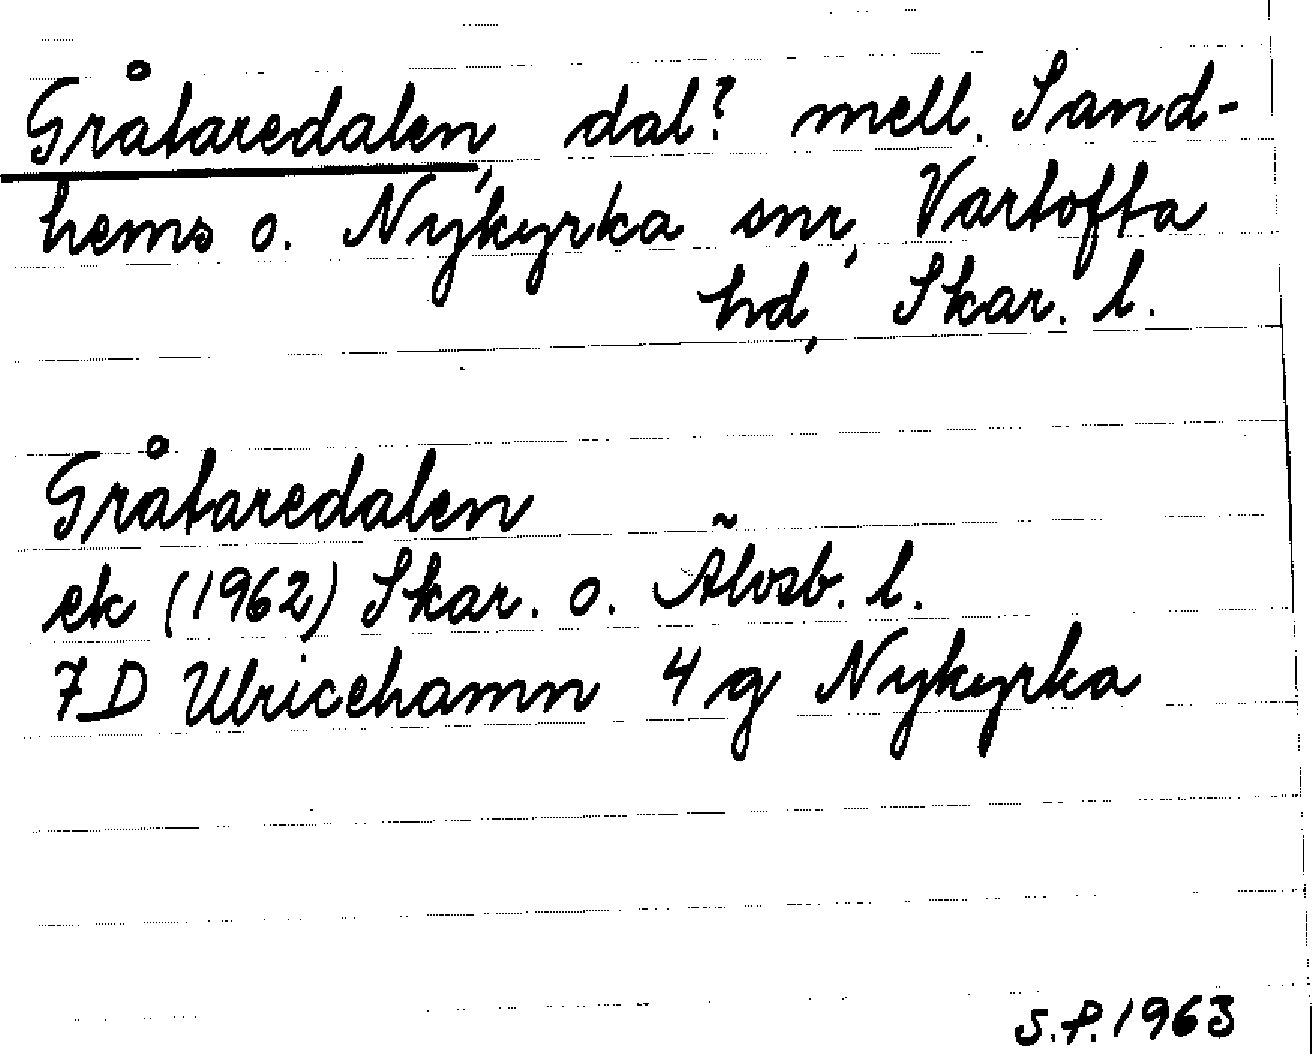 Gråtaredalen, dal? mell. Sand-
hems o. Nykyrka snr, Vartofta
hd, Skar. l.
Gråtaredalen
ek (1962) Skar. o. Älvsb. l.
7D Ulricehamn 4g Nykyrka
S.P. 1963